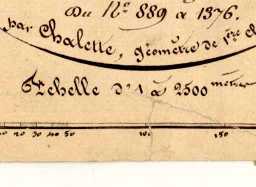 Du N.º 889 à 1376.
par Chalette, géomètre de 1.ère
Echelle d'1 à 2500 mètres
10 20 30 40 50 100 150